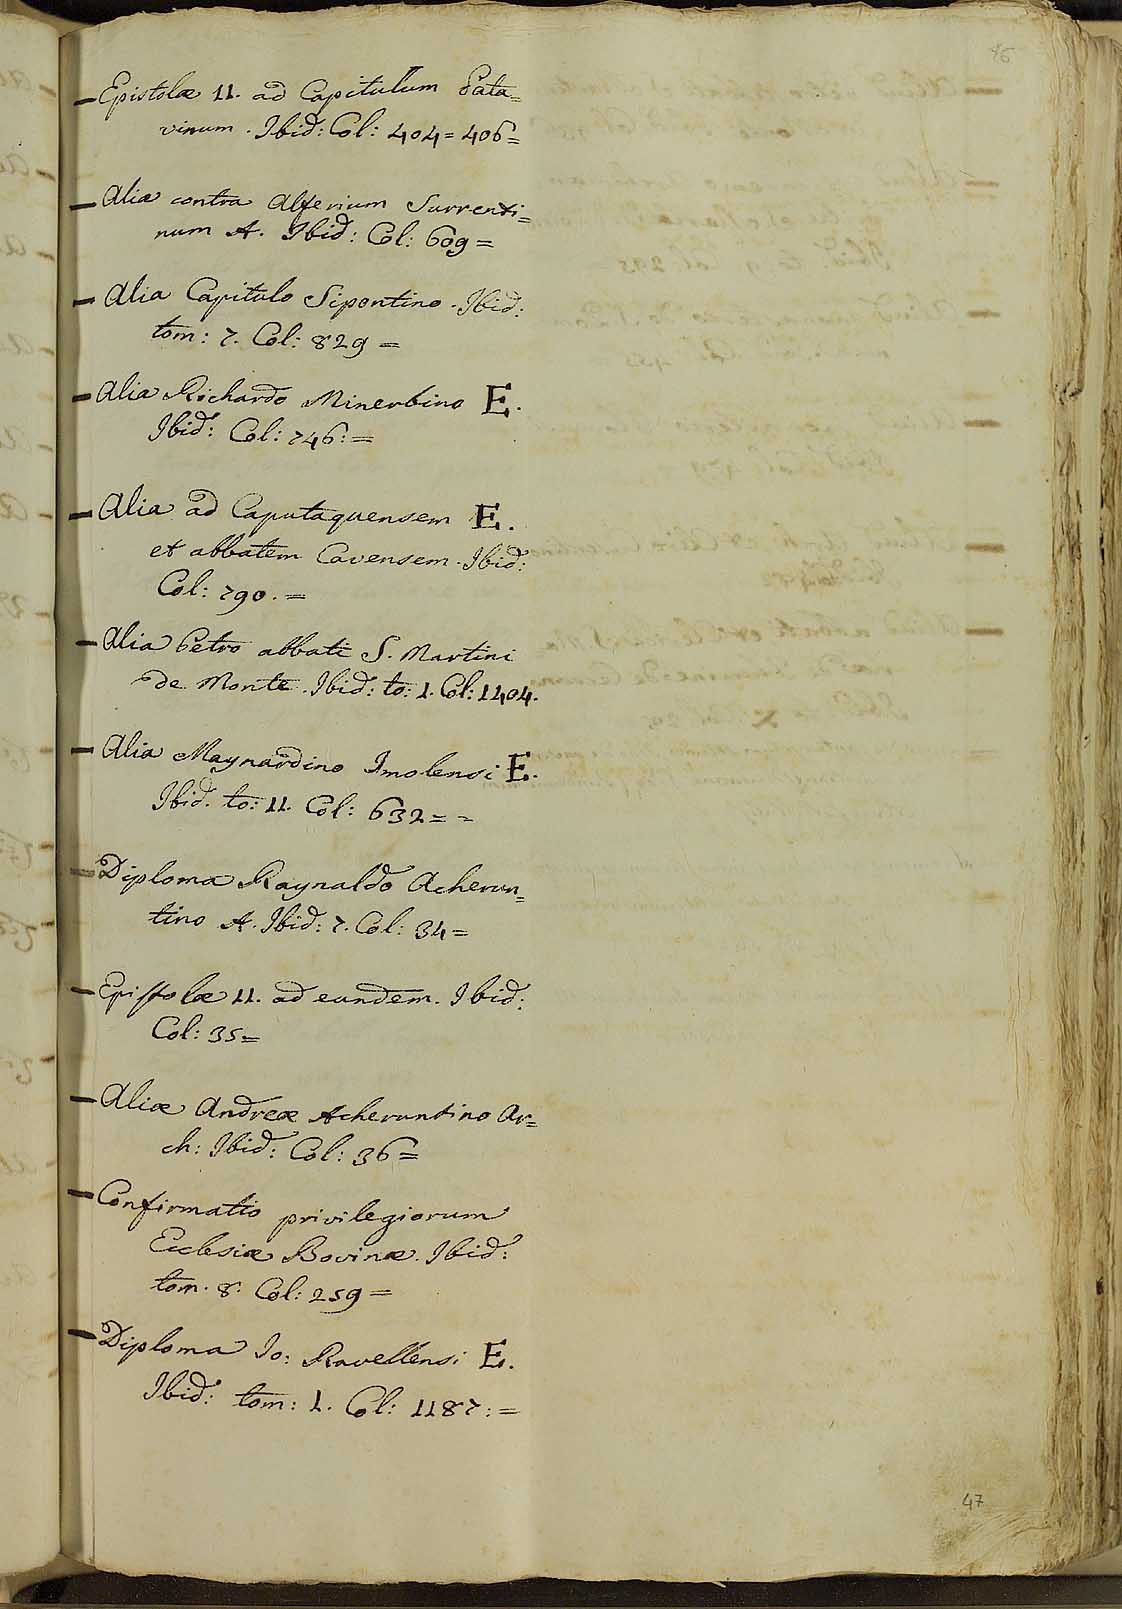 Epistolæ 11. ad Capitulum Pata=
vinum. Ibid: Col: 404=406=
Alia contra Alferium Surrenti=
num A. Ibid: Col: 609=
Alia Capitulo Sipontino. Ibid:
tom: 7. Col: 829=
Alia Richardo Minerbino E.
Ibid: Col: 746:=
Alia ad Caputaquensem E.
et abbatem Cavensem. Ibid:
Col: 790.=
Alia Petro abbati S. Martini
de Monte. Ibid: to: 1. Col: 1404.
Alia Maynardino Imolensi E.
Ibid. to: 11. Col: 632=
Diploma Raynaldo Acherun=
tino A. Ibid: 7. Col: 34=
Epistolæ 11. ad eundem. Ibid:
Col: 35=
Aliæ Andreæ Acheruntino Ar=
ch: Ibid: Col: 36=
Confirmatio privilegiorum
Ecclesiæ Bovinæ. Ibid:
tom. 8. Col: 259=
Diploma Io: Ravellensi E.
Ibid: tom: 1. Col: 1187:=
47